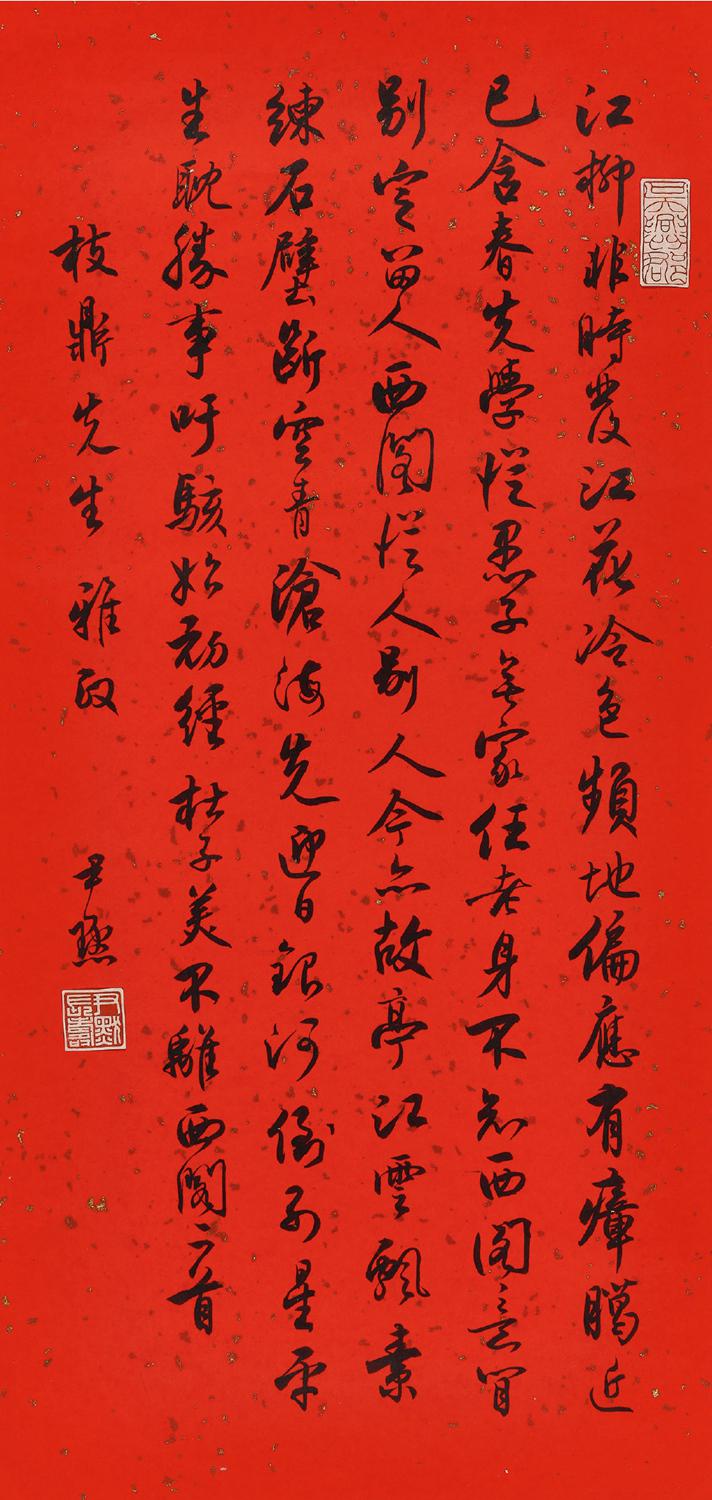 吳興郡
江柳非時發江花冷色頻地偏應有瘴臈近
已含春失學從愚子無家任老身不知西閣意肯
別定留人西閣從人別人今亦故亭江雲飄素
練石壁斷空青滄海先迎日銀河倒列星平
生耽勝事吁駭始初經杜子美不離西閣二首
枝鼎先生 雅政 尹默
尹默長壽